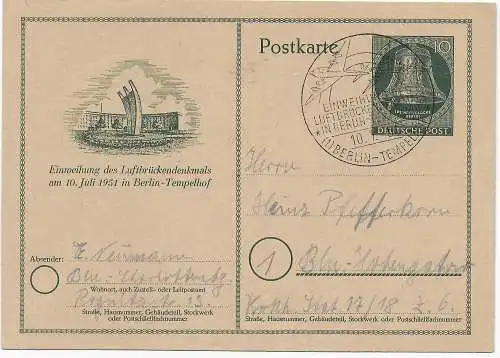 Postkarte
10
DEUTSCHE POST
EINWEIH
LUFTBRÜC
* IN BERLIN-
10.
BERLIN-TEMPEL
Einweihung des Luftbrückendenkmals
am 10. Juli 1951 in Berlin-Tempelhof
Absender: H. Neumann
Bln.-Charlottenbg.
Wohnort, auch Zustell- oder Leitpostamt
13
Straße, Hausnummer, Gebäudeteil, Stockwerk
oder Postschließfachnummer
Herrn
Heinz Pfefferkorn
1
Bln.-
17/18
Straße, Hausnummer, Gebäudeteil, Stockwerk oder Postschließfachnummer